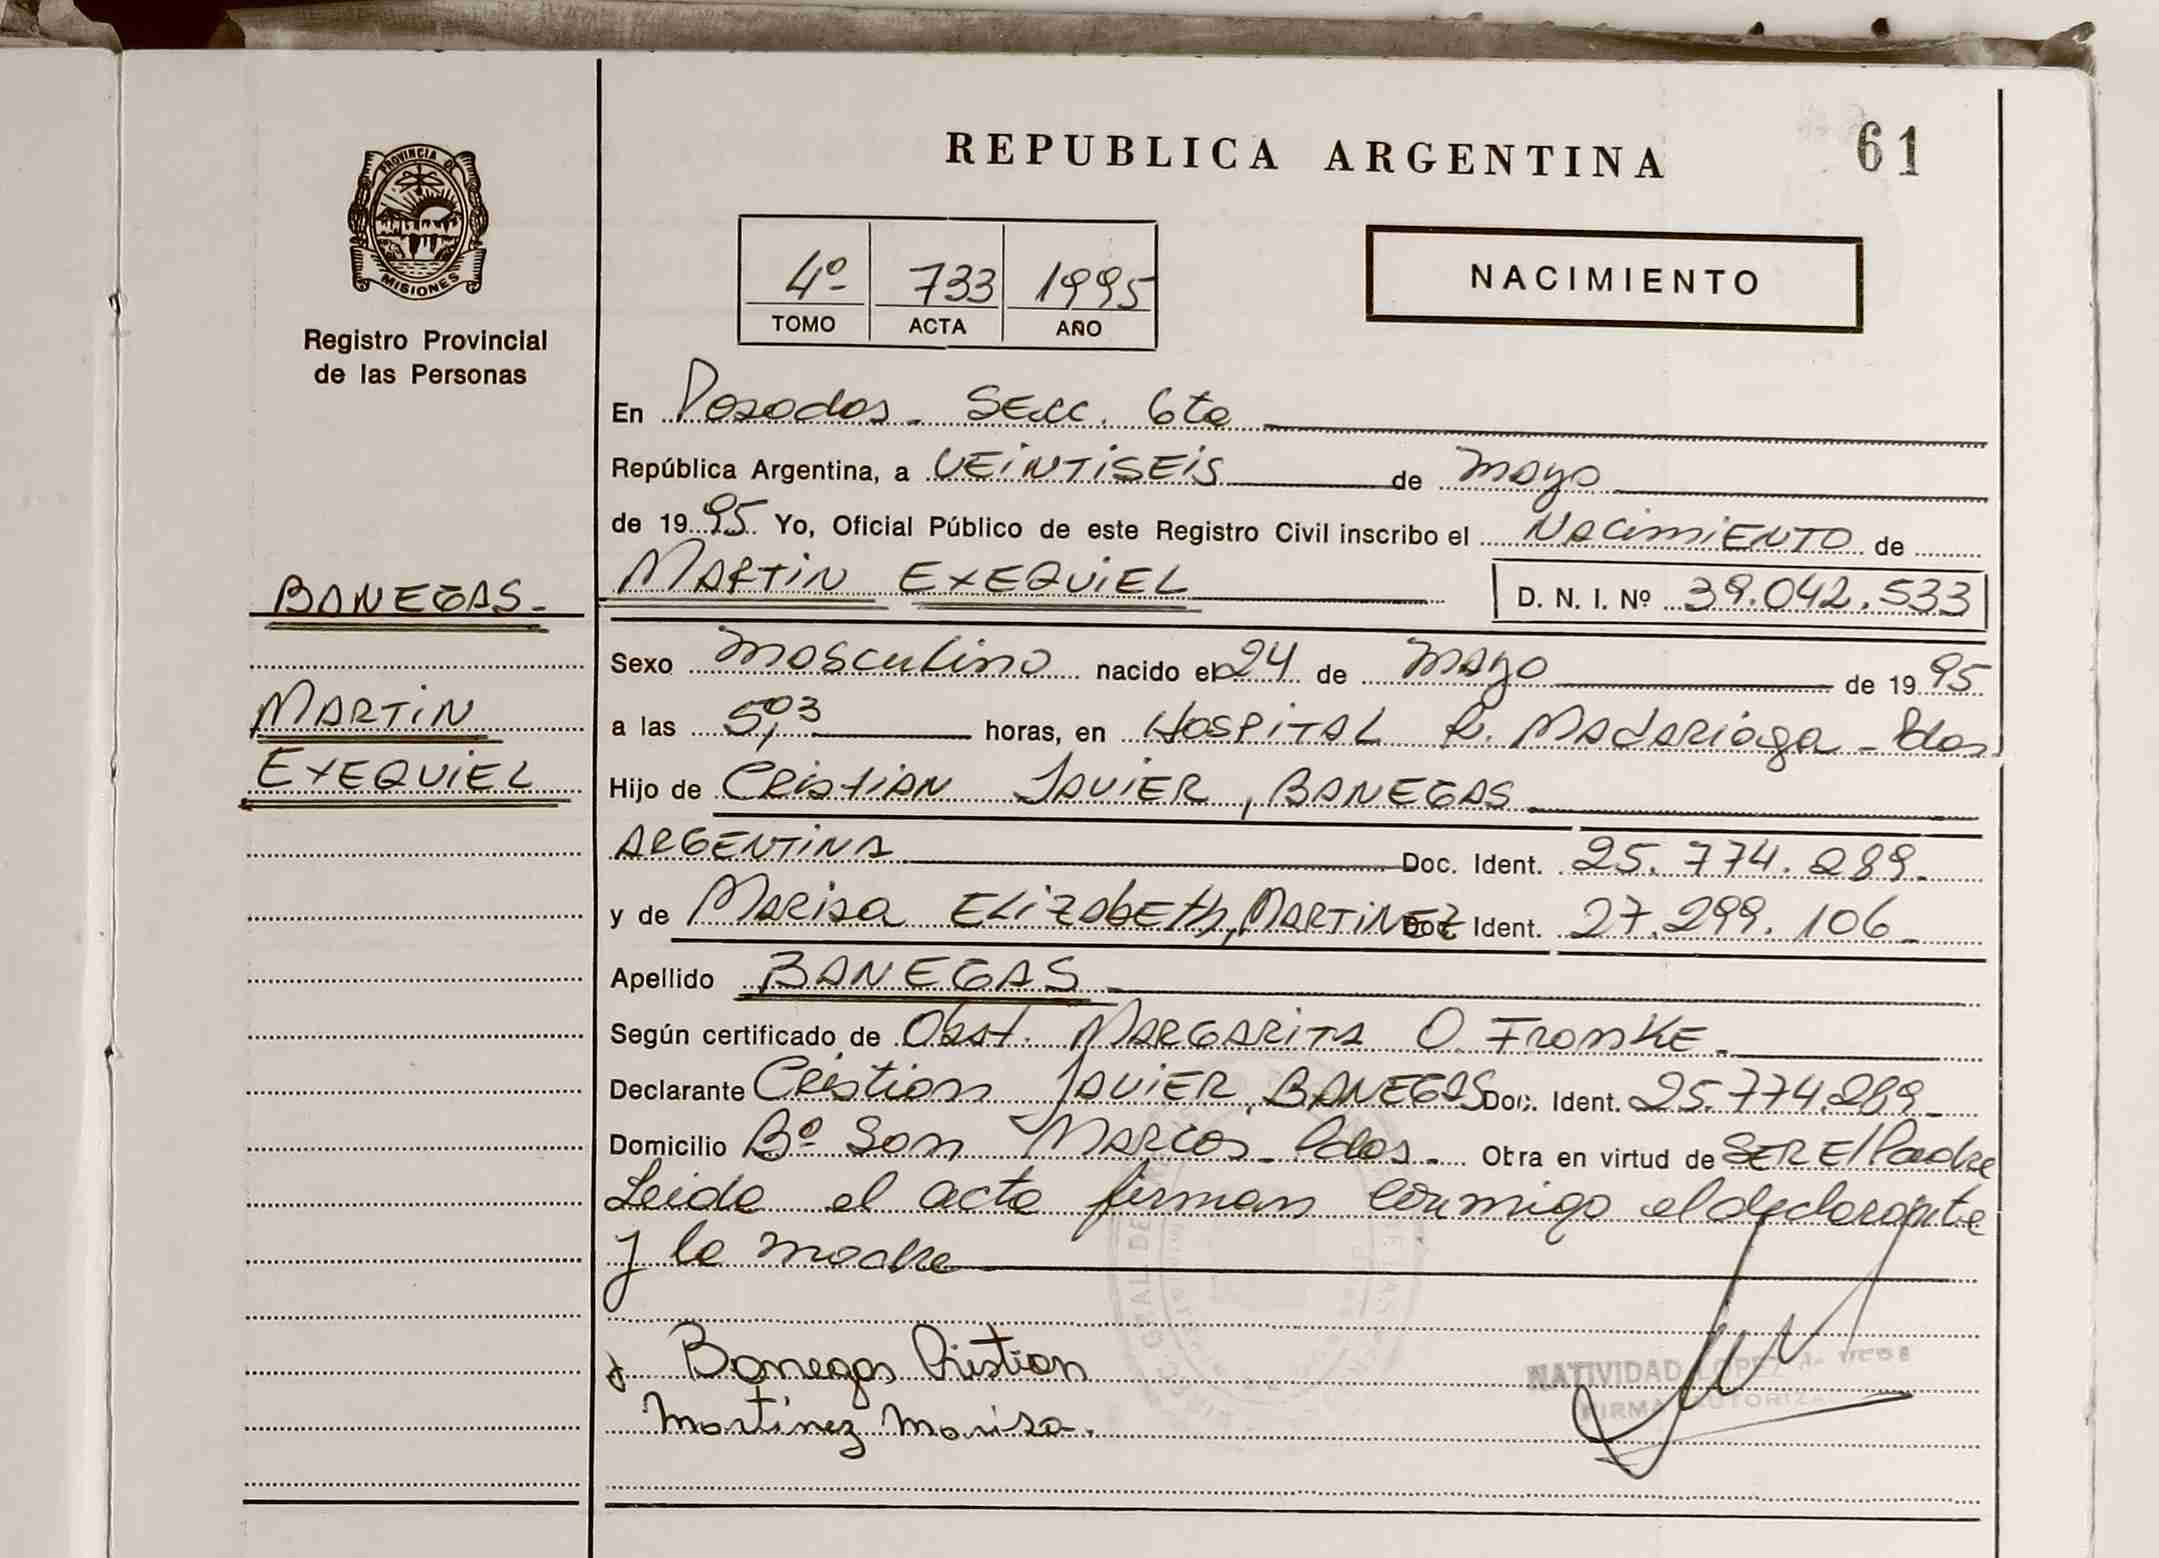 REPUBLICA ARGENTINA
61
PROVINCIA DE
MISIONES
Registro Provincial
de las Personas
4º 733 1995
TOMO ACTA AÑO
NACIMIENTO
En Posadas - Secc. 6ta
República Argentina, a VEINTISEIS de mayo
de 19 95 Yo, Oficial Público de este Registro Civil inscribo el NACIMIENTO de
MARTIN EXEQUIEL D. N. I. Nº 39.042.533
BANEGAS -
MARTIN
EXEQUIEL
Sexo masculino nacido el 24 de mayo de 19 95
a las 5,03 horas, en HOSPITAL R. MADARIAGA - Pdas
Hijo de CRISTIAN JAVIER, BANEGAS
ARGENTINA Doc. Ident. 25.774.289 -
y de MARISA ELIZABETH, MARTINEZ Doc. Ident. 27.299.106 -
Apellido BANEGAS
Según certificado de Obst. MARGARITA O. FROMKE -
Declarante CRISTIAN JAVIER, BANEGAS Doc. Ident. 25.774.289 -
Domicilio Bº San MARCOS - Pdas - Obra en virtud de SER El Padre
Leida el acta firman conmigo el declarante
y la madre
Banegas Cristian
Martinez Marisa.
NATIVIDAD LOPEZ
FIRMA AUTORIZADA